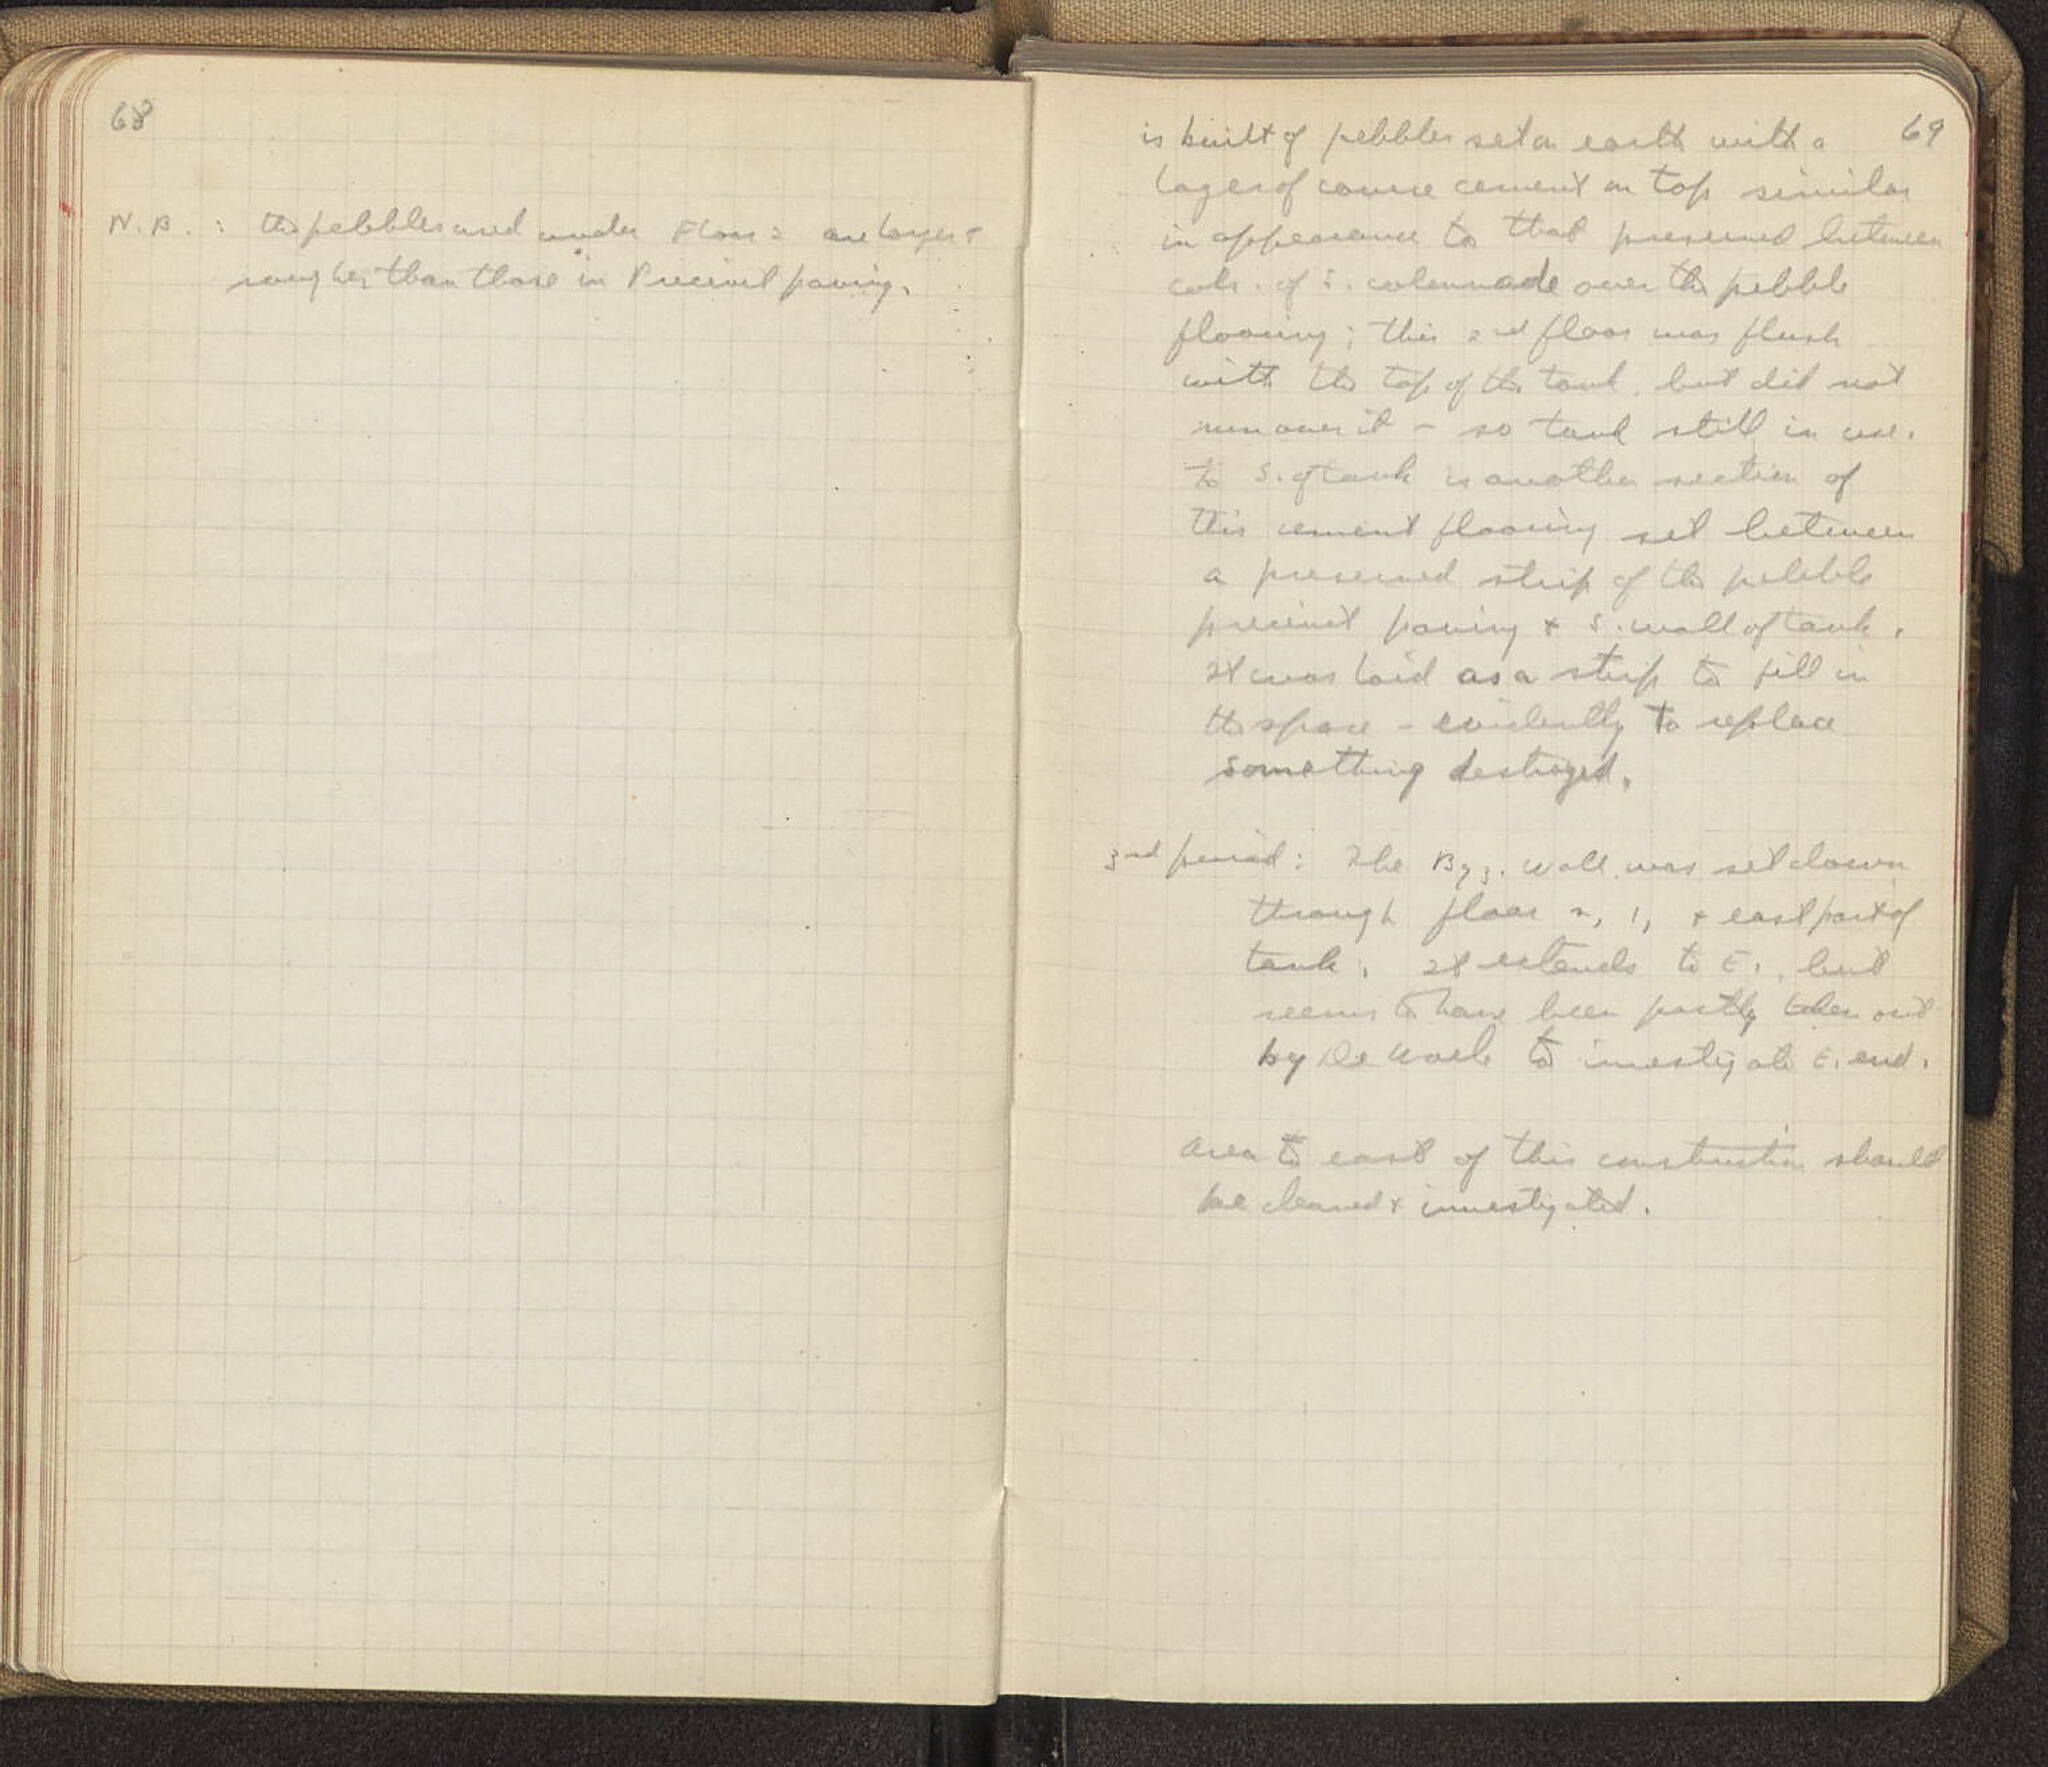 68
N.B. : the pebbles used under Floor 2 are larger &
rougher than those in Precinct paving.
69
is built of pebbles set on earth with a
layer of coarse cement on top similar
in appearance to that preserved between
cols. of S. colonnade over the pebble
flooring; this 2nd floor was flush
with the top of the tank, but did not
run over it – so tank still in use.
to S. of tank is another section of
this cement flooring set between
a preserved strip of the pebble
precinct paving & S. wall of tank.
It was laid as a strip to fill in
the space – evidently to replace
something destroyed.
3rd period: The Byz. wall was set down
through floor 2, 1, & east part of
tank. It extends to E., but
seems to have been partly taken out
by De Waele to investigate E. end.
Area to east of this construction should
be cleaned & investigated.